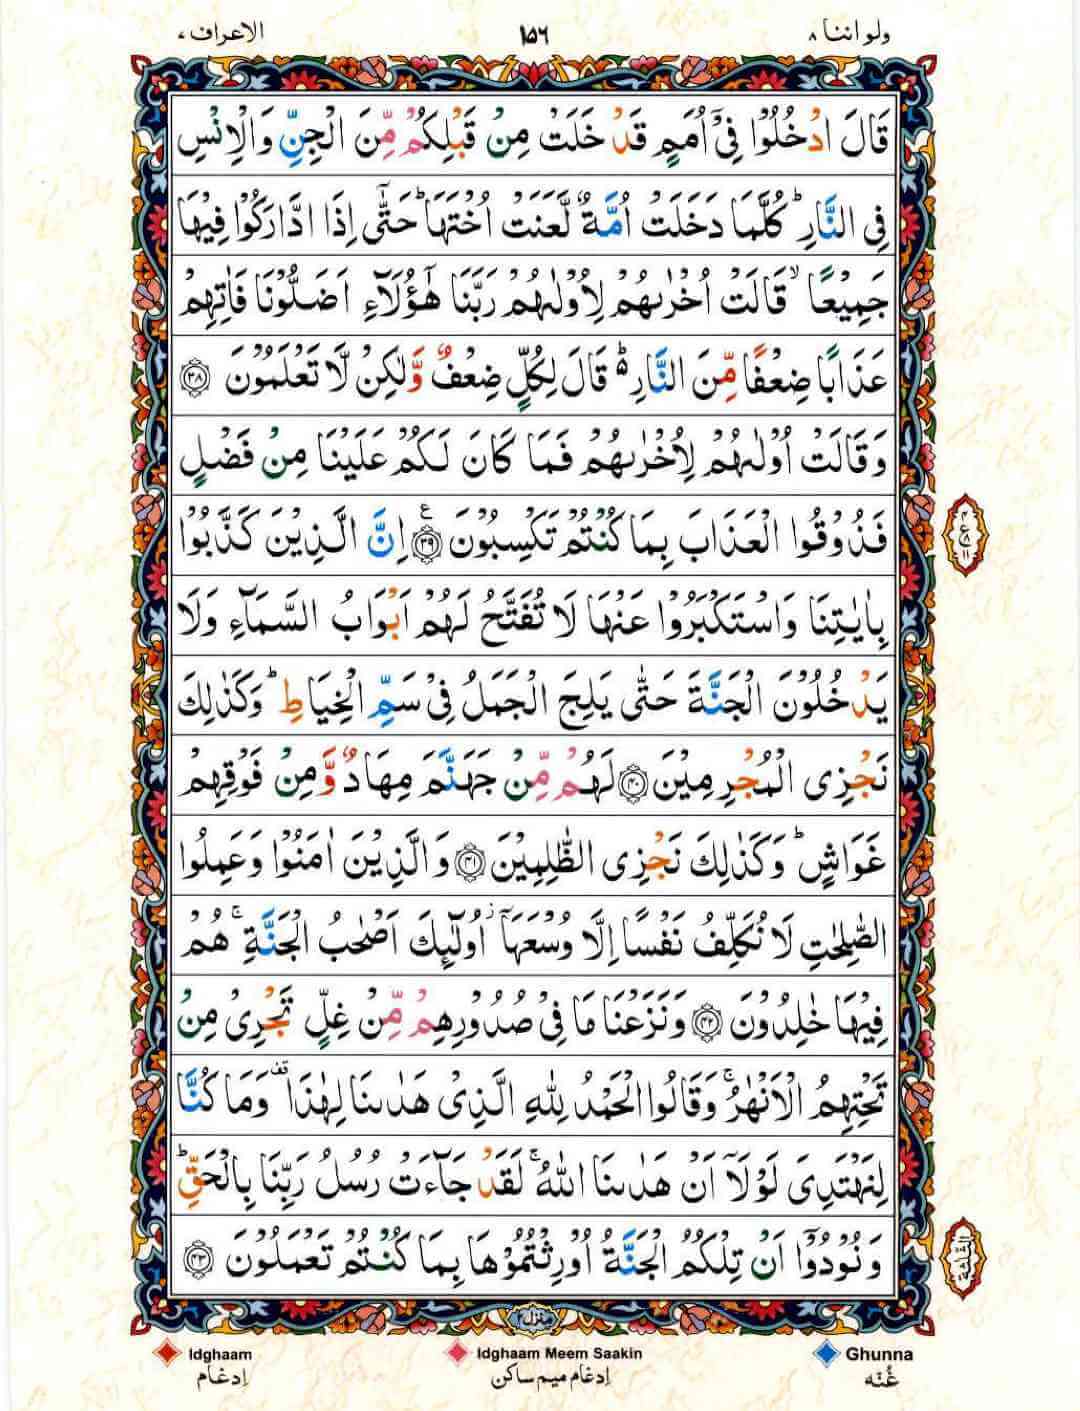 ولو اننا ۸ ۱۵۶ الاعراف ۷
قَالَ ادْخُلُوْا فِیْۤ اُمَمٍ قَدْ خَلَتْ مِنْ قَبْلِكُمْ مِّنَ الْجِنِّ وَالْاِنْسِ
فِی النَّارِ ؕ كُلَّمَا دَخَلَتْ اُمَّةٌ لَّعَنَتْ اُخْتَهَا ؕ حَتّٰۤی اِذَا ادَّارَكُوْا فِیْهَا
جَمِیْعًا ۙ قَالَتْ اُخْرٰىهُمْ لِاُوْلٰىهُمْ رَبَّنَا هٰۤؤُلَآءِ اَضَلُّوْنَا فَاٰتِهِمْ
عَذَابًا ضِعْفًا مِّنَ النَّارِ ؕ۬ قَالَ لِكُلٍّ ضِعْفٌ وَّلٰكِنْ لَّا تَعْلَمُوْنَ ﴿۳۸﴾
وَقَالَتْ اُوْلٰىهُمْ لِاُخْرٰىهُمْ فَمَا كَانَ لَكُمْ عَلَیْنَا مِنْ فَضْلٍ
فَذُوْقُوا الْعَذَابَ بِمَا كُنْتُمْ تَكْسِبُوْنَ ﴿۳۹﴾ ع اِنَّ الَّذِیْنَ كَذَّبُوْا
بِاٰیٰتِنَا وَاسْتَكْبَرُوْا عَنْهَا لَا تُفَتَّحُ لَهُمْ اَبْوَابُ السَّمَآءِ وَلَا
یَدْخُلُوْنَ الْجَنَّةَ حَتّٰی یَلِجَ الْجَمَلُ فِیْ سَمِّ الْخِیَاطِ ؕ وَكَذٰلِكَ
نَجْزِی الْمُجْرِمِیْنَ ﴿۴۰﴾ لَهُمْ مِّنْ جَهَنَّمَ مِهَادٌ وَّمِنْ فَوْقِهِمْ
غَوَاشٍ ؕ وَكَذٰلِكَ نَجْزِی الظّٰلِمِیْنَ ﴿۴۱﴾ وَالَّذِیْنَ اٰمَنُوْا وَعَمِلُوا
الصّٰلِحٰتِ لَا نُكَلِّفُ نَفْسًا اِلَّا وُسْعَهَاۤ ؗ اُولٰٓئِكَ اَصْحٰبُ الْجَنَّةِ ۚ هُمْ
فِیْهَا خٰلِدُوْنَ ﴿۴۲﴾ وَنَزَعْنَا مَا فِیْ صُدُوْرِهِمْ مِّنْ غِلٍّ تَجْرِیْ مِنْ
تَحْتِهِمُ الْاَنْهٰرُ ۚ وَقَالُوا الْحَمْدُ لِلّٰهِ الَّذِیْ هَدٰىنَا لِهٰذَا ۫ وَمَا كُنَّا
لِنَهْتَدِیَ لَوْلَاۤ اَنْ هَدٰىنَا اللّٰهُ ۚ لَقَدْ جَآءَتْ رُسُلُ رَبِّنَا بِالْحَقِّ ؕ
وَنُوْدُوْۤا اَنْ تِلْكُمُ الْجَنَّةُ اُوْرِثْتُمُوْهَا بِمَا كُنْتُمْ تَعْمَلُوْنَ ﴿۴۳﴾
ع ۸ ۱۱
منزل ۲
Ghunna Idghaam Meem Saakin Idghaam
غُنّه اِدغام میم ساکن اِدغام